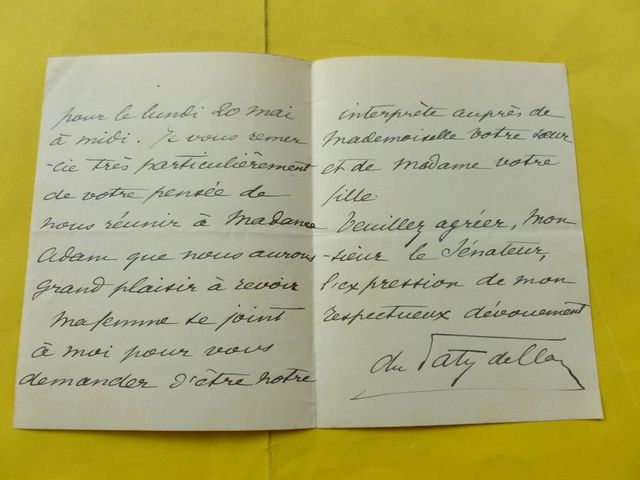 pour le lundi 20 mai
à midi. Je vous remer
-cie très particulièrement
de votre pensée de
nous réunir à Madame
Adam que nous aurons
grand plaisir à revoir
Ma femme se joint
à moi pour vous
demander d'être notre
interprète auprès de
Mademoiselle votre soeur
et de Madame votre
fille.
Veuillez agréer, Mon
-sieur le Sénateur,
l'expression de mon
respectueux dévouement
du Paty de Clam